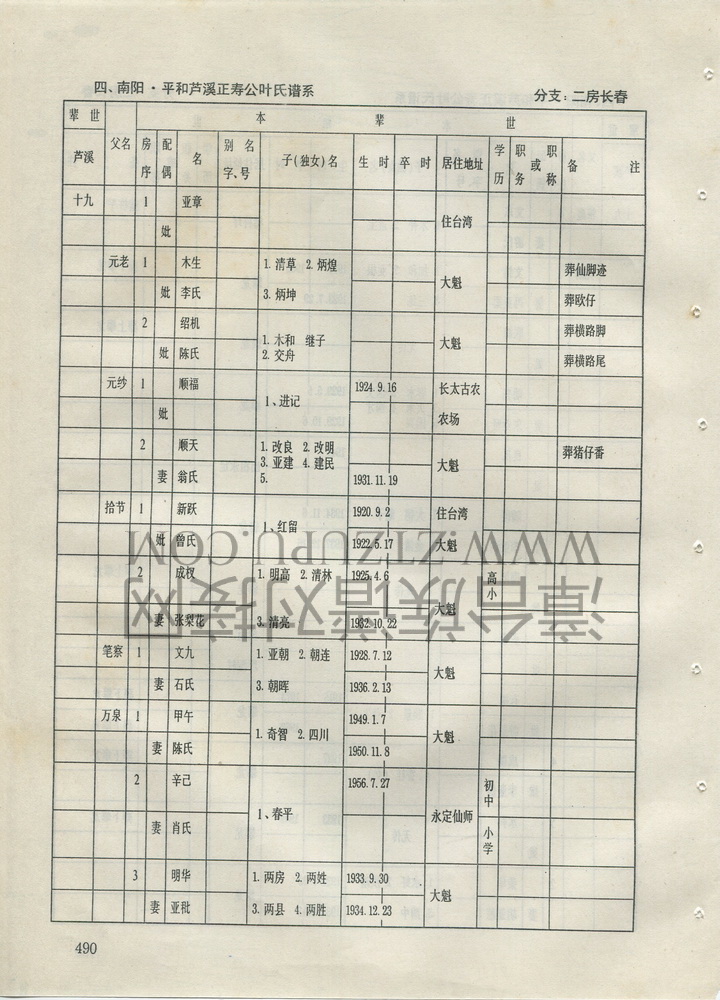 四、南阳·平和芦溪正寿公叶氏谱系 分支：二房长春
辈世 本 辈 世
芦溪 父名 房序 配偶 名 别名字、号 子(独女)名 生时 卒时 居住地址 学历 职务或职称 备注
十九 1 亚章 住台湾
妣
元老 1 木生 1. 清草 2. 炳煌 大魁 葬仙脚迹
妣 李氏 3. 炳坤 葬欧仔
2 绍机 1. 木和 继子 大魁 葬横路脚
妣 陈氏 2. 交舟 葬横路尾
元纱 1 顺福 1、进记 1924.9.16 长太古农
妣 农场
2 顺天 1. 改良 2. 改明 大魁 葬猪仔番
3. 亚建 4. 建民
妻 翁氏 5. 1931.11.19
拾节 1 新跃 1、红留 1920.9.2 住台湾
妣 曾氏 1922.5.17 大魁
2 成权 1. 明高 2. 清林 1925.4.6 大魁 高小
妻 张梨花 3. 清亮 1932.10.22
笔察 1 文九 1. 亚朝 2. 朝连 1928.7.12 大魁
妻 石氏 3. 朝晖 1936.2.13
万泉 1 甲午 1. 奇智 2. 四川 1949.1.7 大魁
妻 陈氏 1950.11.8
2 辛己 1、春平 1956.7.27 永定仙师 初中
妻 肖氏 小学
3 明华 1. 两房 2. 两姓 1933.9.30 大魁
妻 亚秕 3. 两县 4. 两胜 1934.12.23
490
漳台族谱对接网
WWW.ZTZUPU.COM